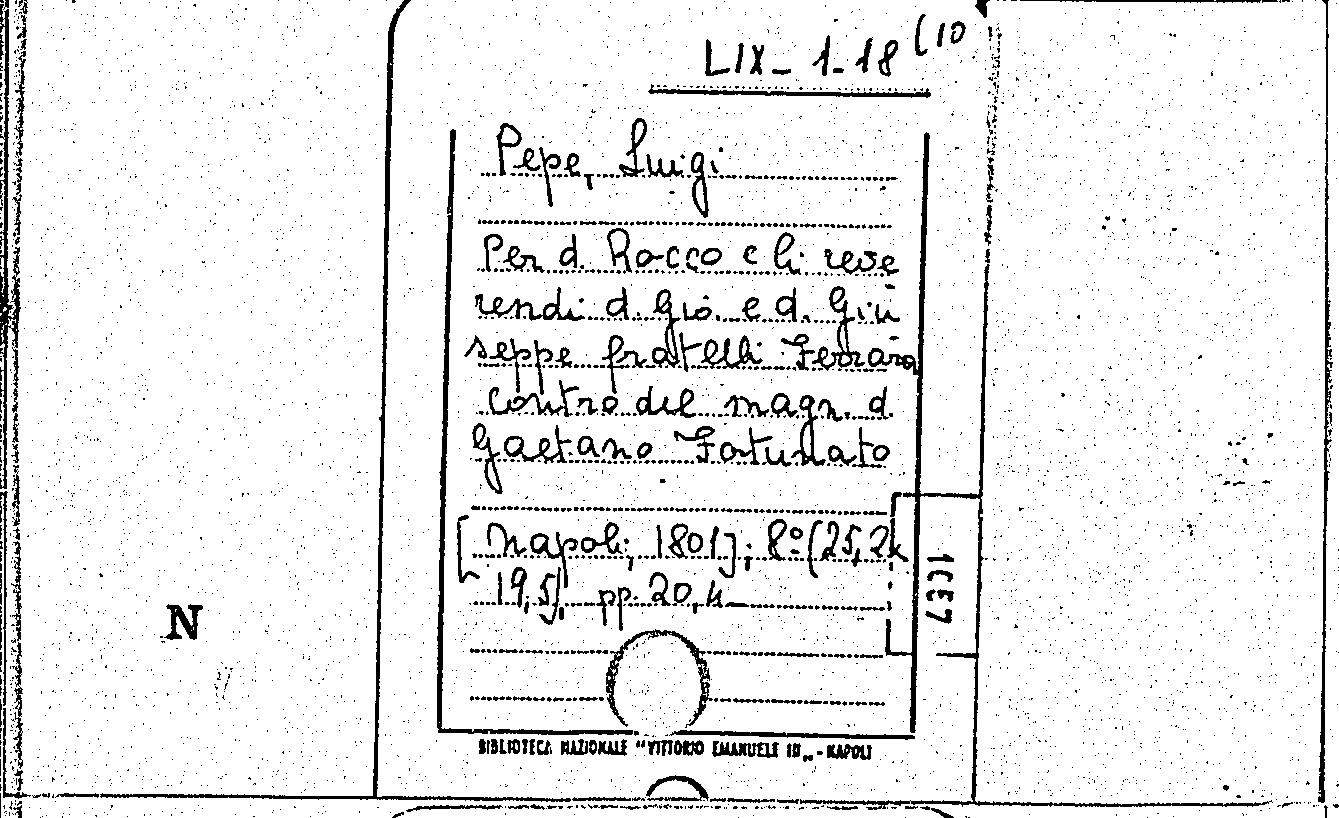 LIX-1-18 (10
Pepe, Luigi
Per d. Rocco e li reve
rendi d. Gio. e d. Giu
seppe fratelli Ferrara
contro del magn. d.
Gaetano Fortunato
[Napoli, 1801]; 8º (25,2x
19,5), pp. 20,4
N
BIBLIOTECA NAZIONALE "VITTORIO EMANUELE III„ - NAPOLI